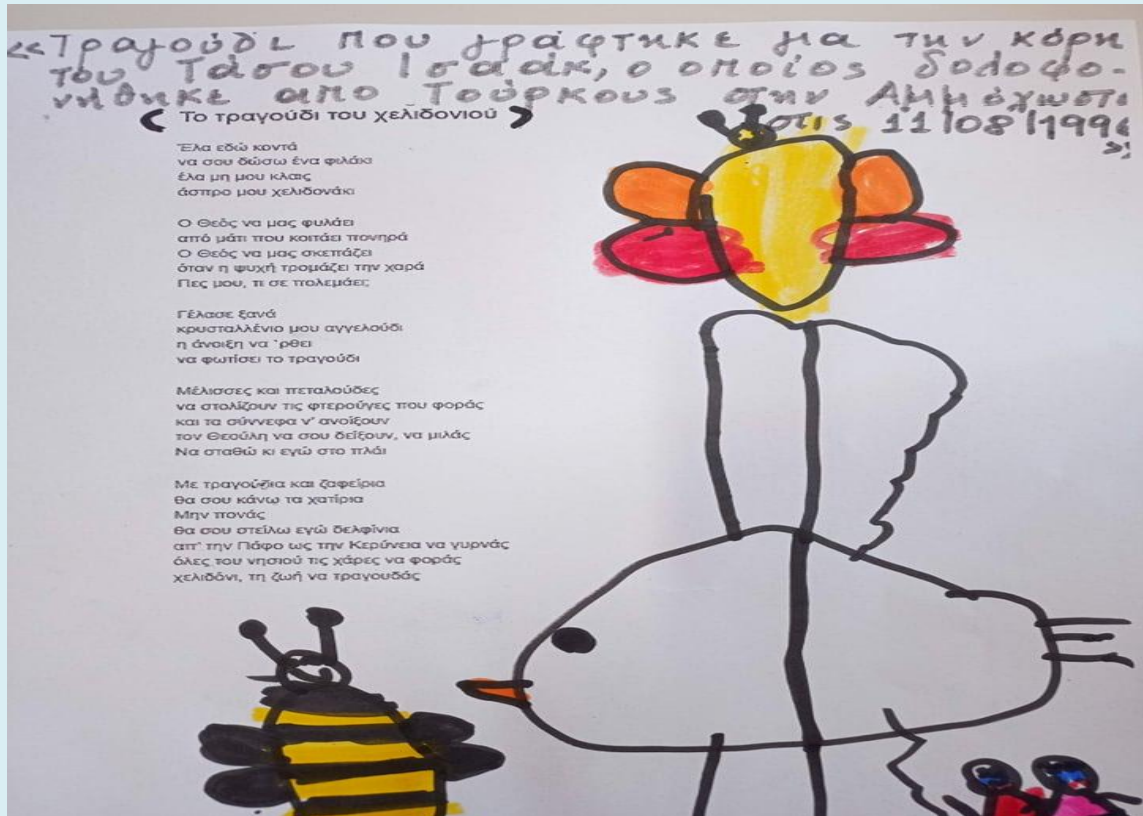 «Τραγούδι που γράφτηκε για την κόρη
του Τάσου Ισαάκ, ο οποίος δολοφο-
νήθηκε απο Τούρκους στην Αμμόχωστο
στις 11/08/1996
»
Το τραγούδι του χελιδονιού
Έλα εδώ κοντά
να σου δώσω ένα φιλάκι
έλα μη μου κλαις
άσπρο μου χελιδονάκι
Ο Θεός να μας φυλάει
από μάτι που κοιτάει πονηρά
Ο Θεός να μας σκεπάζει
όταν η ψυχή τρομάζει την χαρά
Πες μου, τι σε πολεμάει;
Γέλασε ξανά
κρυσταλλένιο μου αγγελούδι
η άνοιξη να 'ρθει
να φωτίσει το τραγούδι
Μέλισσες και πεταλούδες
να στολίζουν τις φτερούγες που φοράς
και τα σύννεφα ν' ανοίξουν
τον Θεούλη να σου δείξουν, να μιλάς
Να σταθώ κι εγώ στο πλάι
Με τραγούδια και ζαφείρια
θα σου κάνω τα χατίρια
Μην πονάς
θα σου στείλω εγώ δελφίνια
απ' την Πάφο ως την Κερύνεια να γυρνάς
όλες του νησιού τις χάρες να φοράς
χελιδόνι, τη ζωή να τραγουδάς